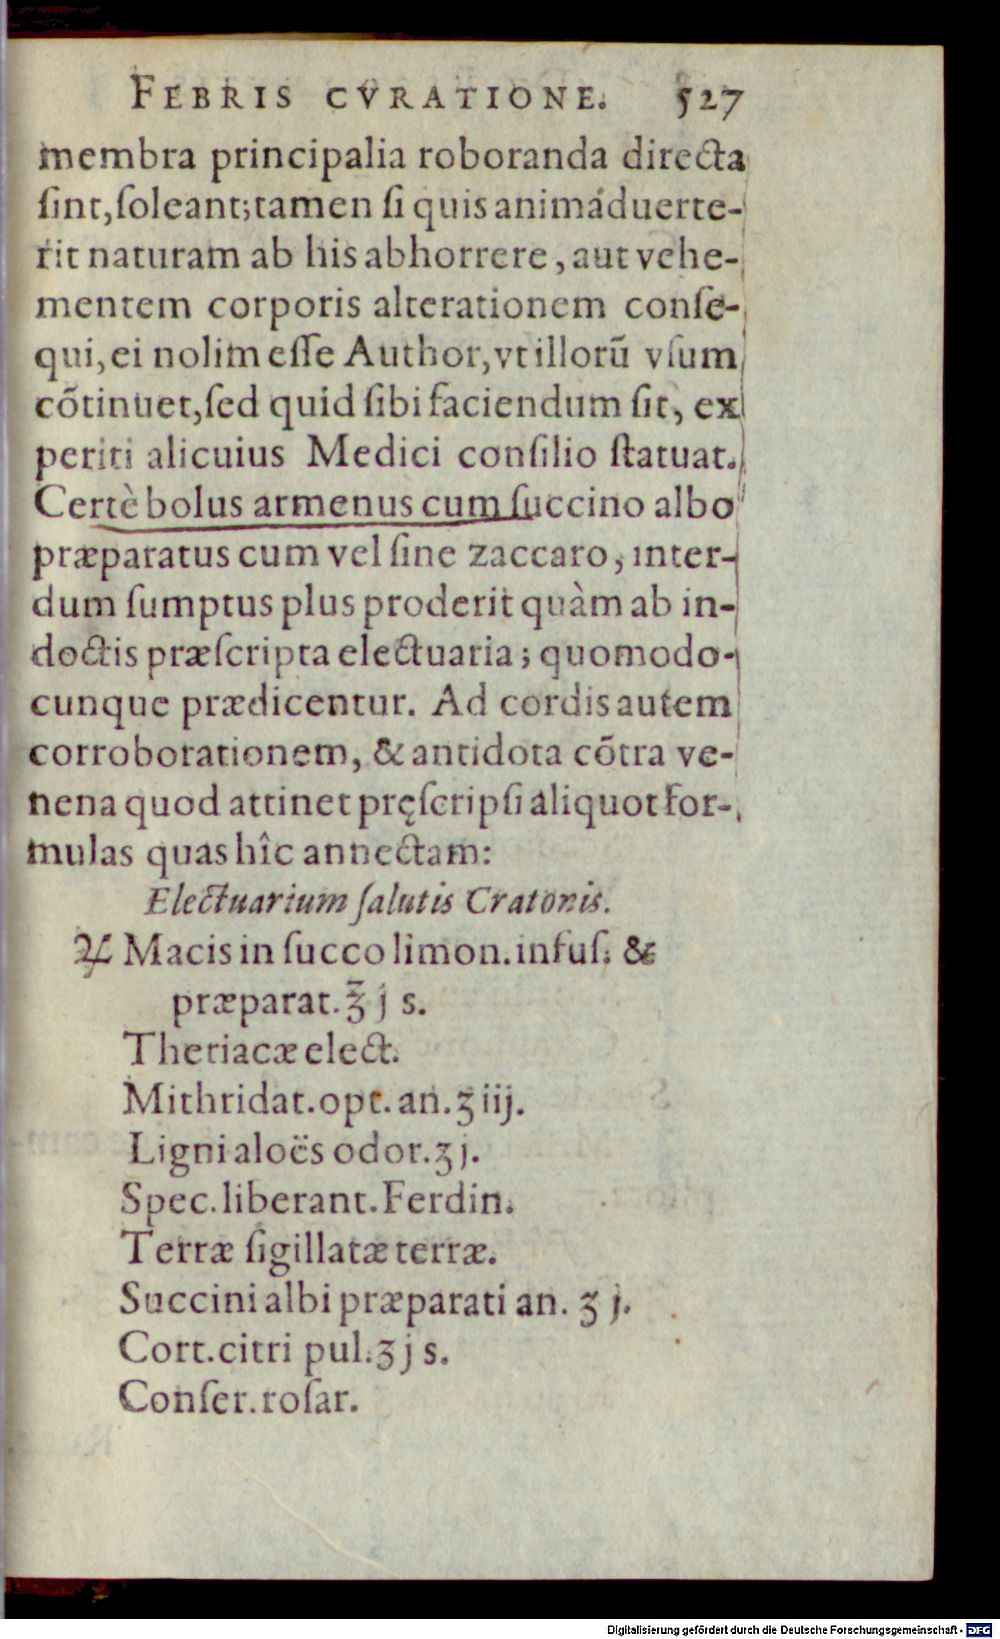 FEBRIS CVRATIONE. 527
membra principalia roboranda directa
ſint,ſoleant;tamen ſi quis animáduerte-
rit naturam ab his abhorrere, aut vehe-
mentem corporis alterationem conſe-
qui, ei nolim eſſe Author, vt illorũ vſum
cõtinuet, ſed quid ſibi faciendum ſit, ex
periti alicuius Medici conſilio ſtatuat.
Certè bolus armenus cum ſuccino albo
præparatus cum vel ſine zaccaro, inter-
dum ſumptus plus proderit quàm ab in-
doctis præſcripta electuaria; quomodo-
cunque prædicentur. Ad cordis autem
corroborationem, & antidota cõtra ve-
nena quod attinet pręſcripſi aliquot for-
mulas quas hîc annectam:
Electuarium ſalutis Cratonis.
♃ Macis in ſucco limon. infuſ. &
præparat. ℥ j s.
Theriacæ elect.
Mithridat. opt. an. ʒ iij.
Ligni aloës odor. ʒ j.
Spec. liberant. Ferdin.
Terræ ſigillatæ terræ.
Succini albi præparati an. ʒ j.
Cort. citri pul. ʒ j s.
Conſer. roſar.
Digitalisierung gefördert durch die Deutsche Forschungsgemeinschaft - DFG